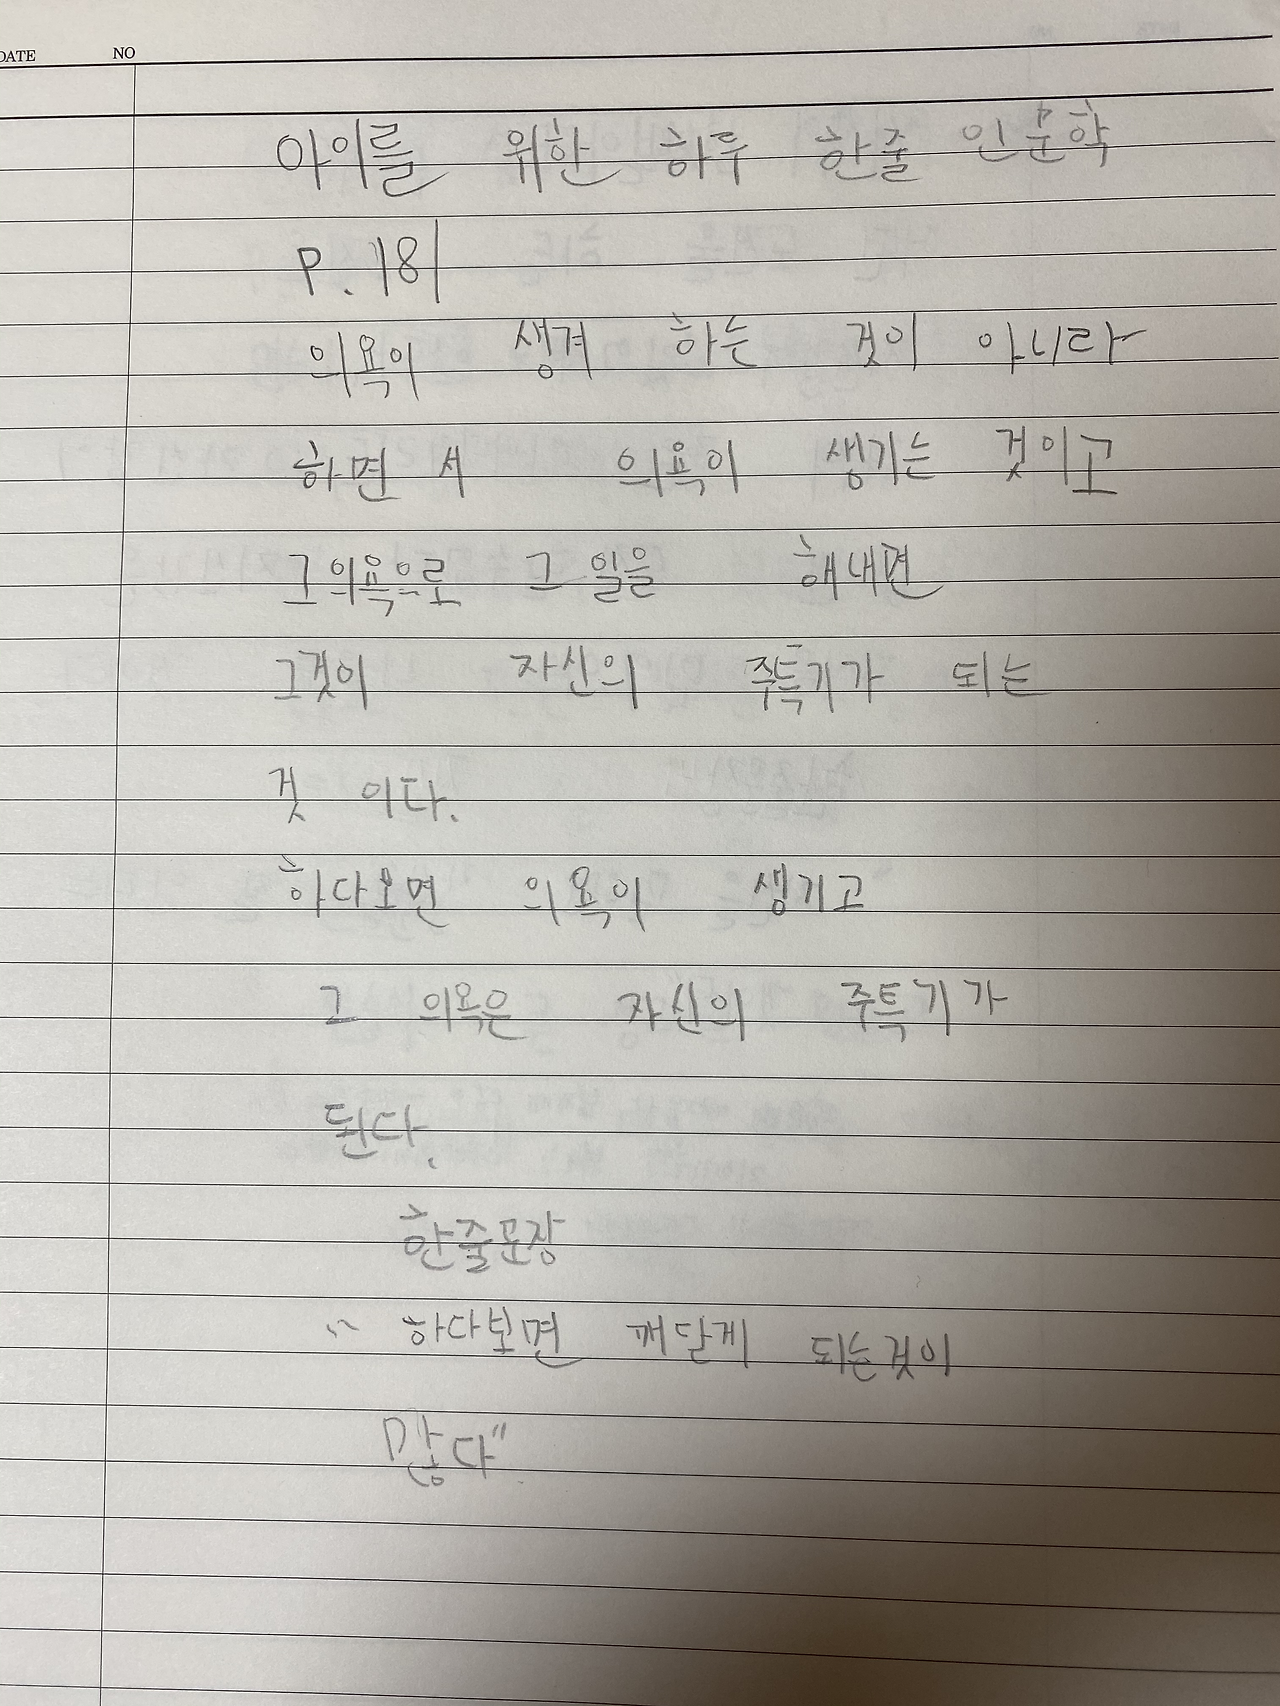 DATE NO
아이를 위한 하루 한줄 인문학
P. 181
의욕이 생겨 하는 것이 아니라
하면 서 의욕이 생기는 것이고
그의욕으로 그 일을 해내면
그것이 자신의 주특기가 되는
것 이다.
하다보면 의욕이 생기고
그 의욕은 자신의 주특기가
된다.
한줄문장
"하다보면 깨달게 되는것이
많다"